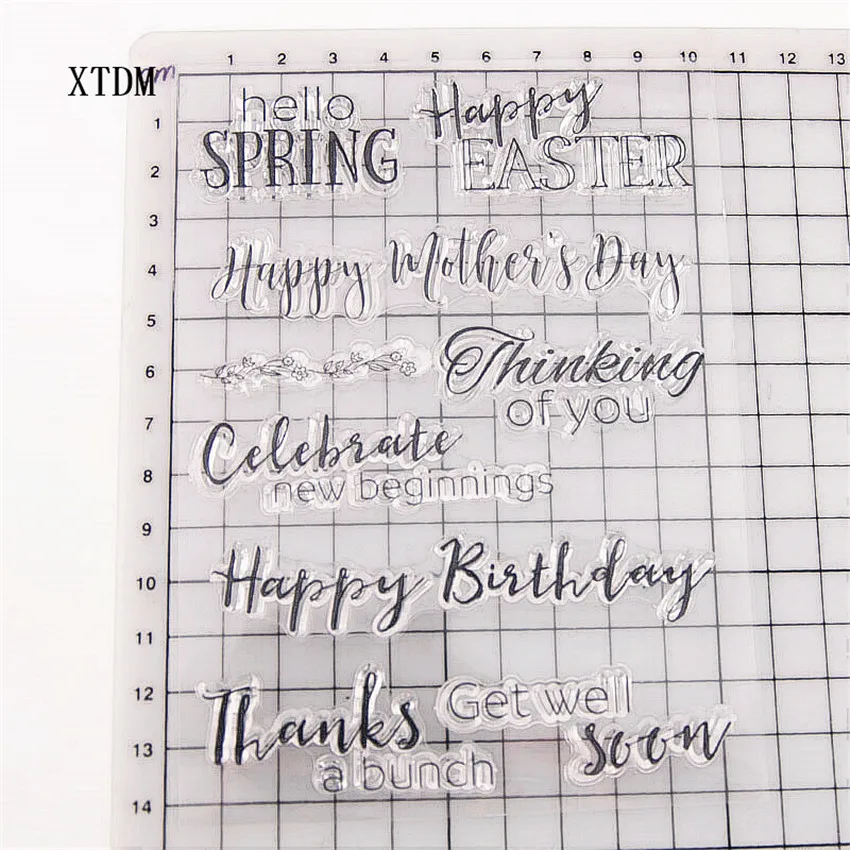 1 2 3 4 5 6 7 8 9 10 11 12 13
XTDM
m
1
2
3
4
5
6
7
8
9
10
11
12
13
14
hello
SPRING
Happy
EASTER
Happy Mother's Day
Thinking
of you
Celebrate
new beginnings
Happy Birthday
Thanks
a bunch
Get well
soon